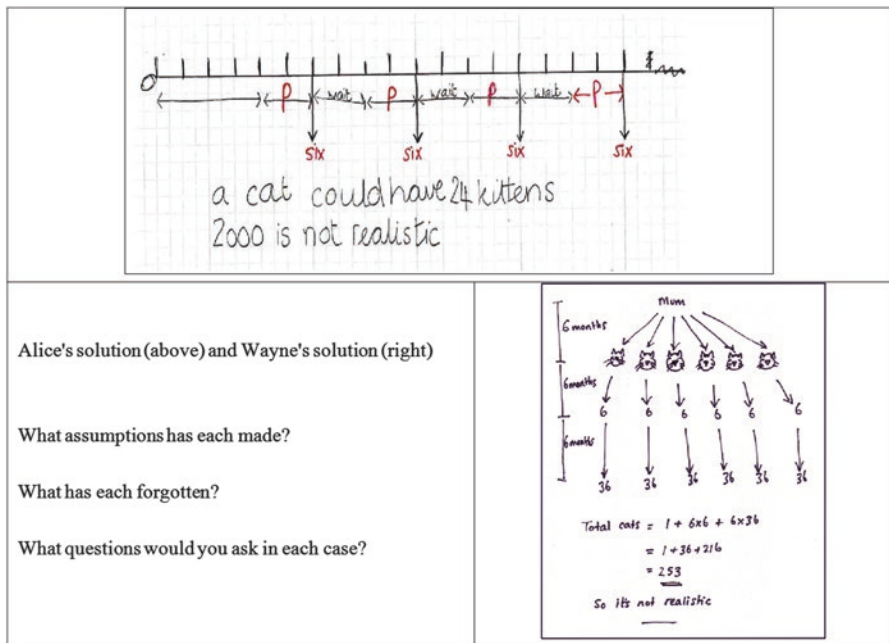 O
P wait P wait P wait P
six six six six
a cat could have 24 kittens
2000 is not realistic
Alice's solution (above) and Wayne's solution (right)
What assumptions has each made?
What has each forgotten?
What questions would you ask in each case?
Mum
6 months
6 months
6 6 6 6 6 6
6 months
36 36 36 36 36 36
Total cats = 1 + 6x6 + 6x36
= 1 + 36 + 216
= 253
So it's not realistic